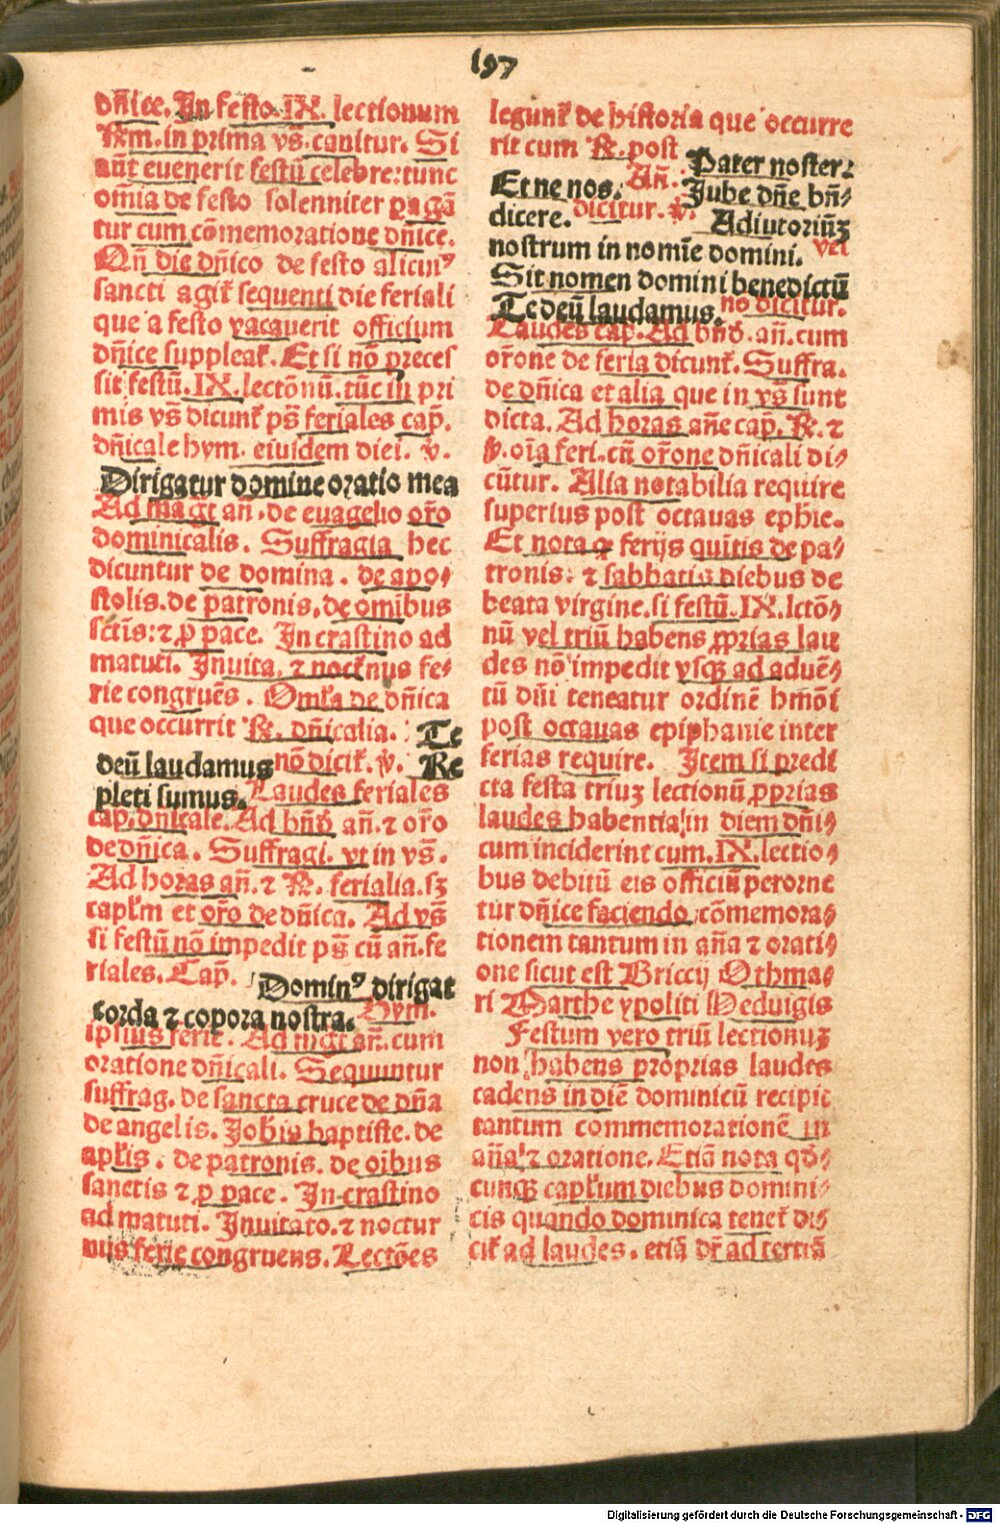 197
dñice. In festo. IX. lectionum
℟m. in prima vs̃. canitur. Si
aũt euenerit festũ celebre: tunc
om̃ia de festo solenniter pagã
tur cum cõmemoratione dñice.
Qñ die dñico de festo alicui⁹
sancti agit̃ sequenti die feriali
que a festo vacauerit officium
dñice suppleat̃. Et si nõ preces
sit festũ. IX. lectõnũ. tũc in pri
mis vs̃ dicunt̃ ps̃ feriales cap̃.
dñicale hym. eiusdem diei. ℣.
Dirigatur domine oratio mea
Ad mag̃t añ. de euãgelio or̃o
dominicalis. Suffragia hec
dicuntur de domina. de apo⸗
stolis. de patronis. de omĩbus
sctĩs: ⁊ ꝓ pace. In crastino ad
matuti. Inuita. ⁊ nocĩnus fe⸗
rie congruẽs. Omĩa de dñica
que occurrit ℟. dñicalia. Te
deũ laudamus nõ dicit̃. ℣. Re
pleti sumus. Laudes feriales
cap. dñicale. Ad bñd̃ añ. ⁊ or̃o
de dñica. Suffragi. vt in vs̃.
Ad horas añ. ⁊ ℟. ferialia. sꝫ
capĩm et or̃o de dñica. Ad vs̃
si festũ nõ impedit ps̃ cũ añ. fe
riales. Cap̃. Domin⁹ dirigat
corda ⁊ copora nostra. Hym.
ipsius ferie. Ad mg̃t añ. cum
oratione dñicali. Sequuntur
suffrag. de sancta cruce de dña
de angelis. Johĩs baptiste. de
aplĩs. de patronis. de oĩbus
sanctis ⁊ ꝓ pace. In crastino
ad matuti. Inuitato. ⁊ noctur
nis ferie congruens. Lectões
legunt̃ de historia que occurre
rit cum ℟. post Pater noster:
Et ne nos. Añ. Jube dñe bñ⸗
dicere. dicitur. ℣. Adiutoriũꝫ
nostrum in nomĩe domini. vel
Sit nomen domini benedictũ
Te deũ laudamus. nõ dicitur.
Laudes cap. Ad bñd̃. añ. cum
or̃one de feria dicunt̃. Suffra.
de dñica et alia que in vs̃ sunt
dicta. Ad horas añe cap̃. ℟. ⁊
℣. oĩa feri. cũ or̃one dñicali di⸗
cũtur. Alia notabilia require
superius post octauas ephie.
Et nota ꝙ ferijs quĩtis de pa⸗
tronis: ⁊ sabbatis diebus de
beata virgine. si festũ. IX. lctõ⸗
nũ vel triũ habens ꝓprias lau
des nõ impedit vsqꝫ ad aduẽ⸗
tũ dñi teneatur ordinẽ hmõi
post octauas epiphanie inter
ferias require. Item si predi
cta festa triuꝫ lectionũ ꝓprias
laudes habentia in diem dñi⸗
cum inciderint cum. IX. lectio⸗
bus debitũ eis officiũ perorne
tur dñice faciendo cõmemora⸗
tionem tantum in aña ⁊ orati⸗
one sicut est Briccij Othma⸗
ri Marthe ypoliti Heduigis
Festum vero triũ lectionuꝫ
non habens proprias laudes
cadens in diẽ dominicũ recipit
tantum commemorationẽ in
aña ⁊ oratione. Etiã nota qd̃⸗
cunqꝫ caplĩum diebus domini⸗
cis quando dominica tenet̃ di⸗
cit̃ ad laudes. etiã dr̃ ad tertiã
Digitalisierung gefördert durch die Deutsche Forschungsgemeinschaft - DFG